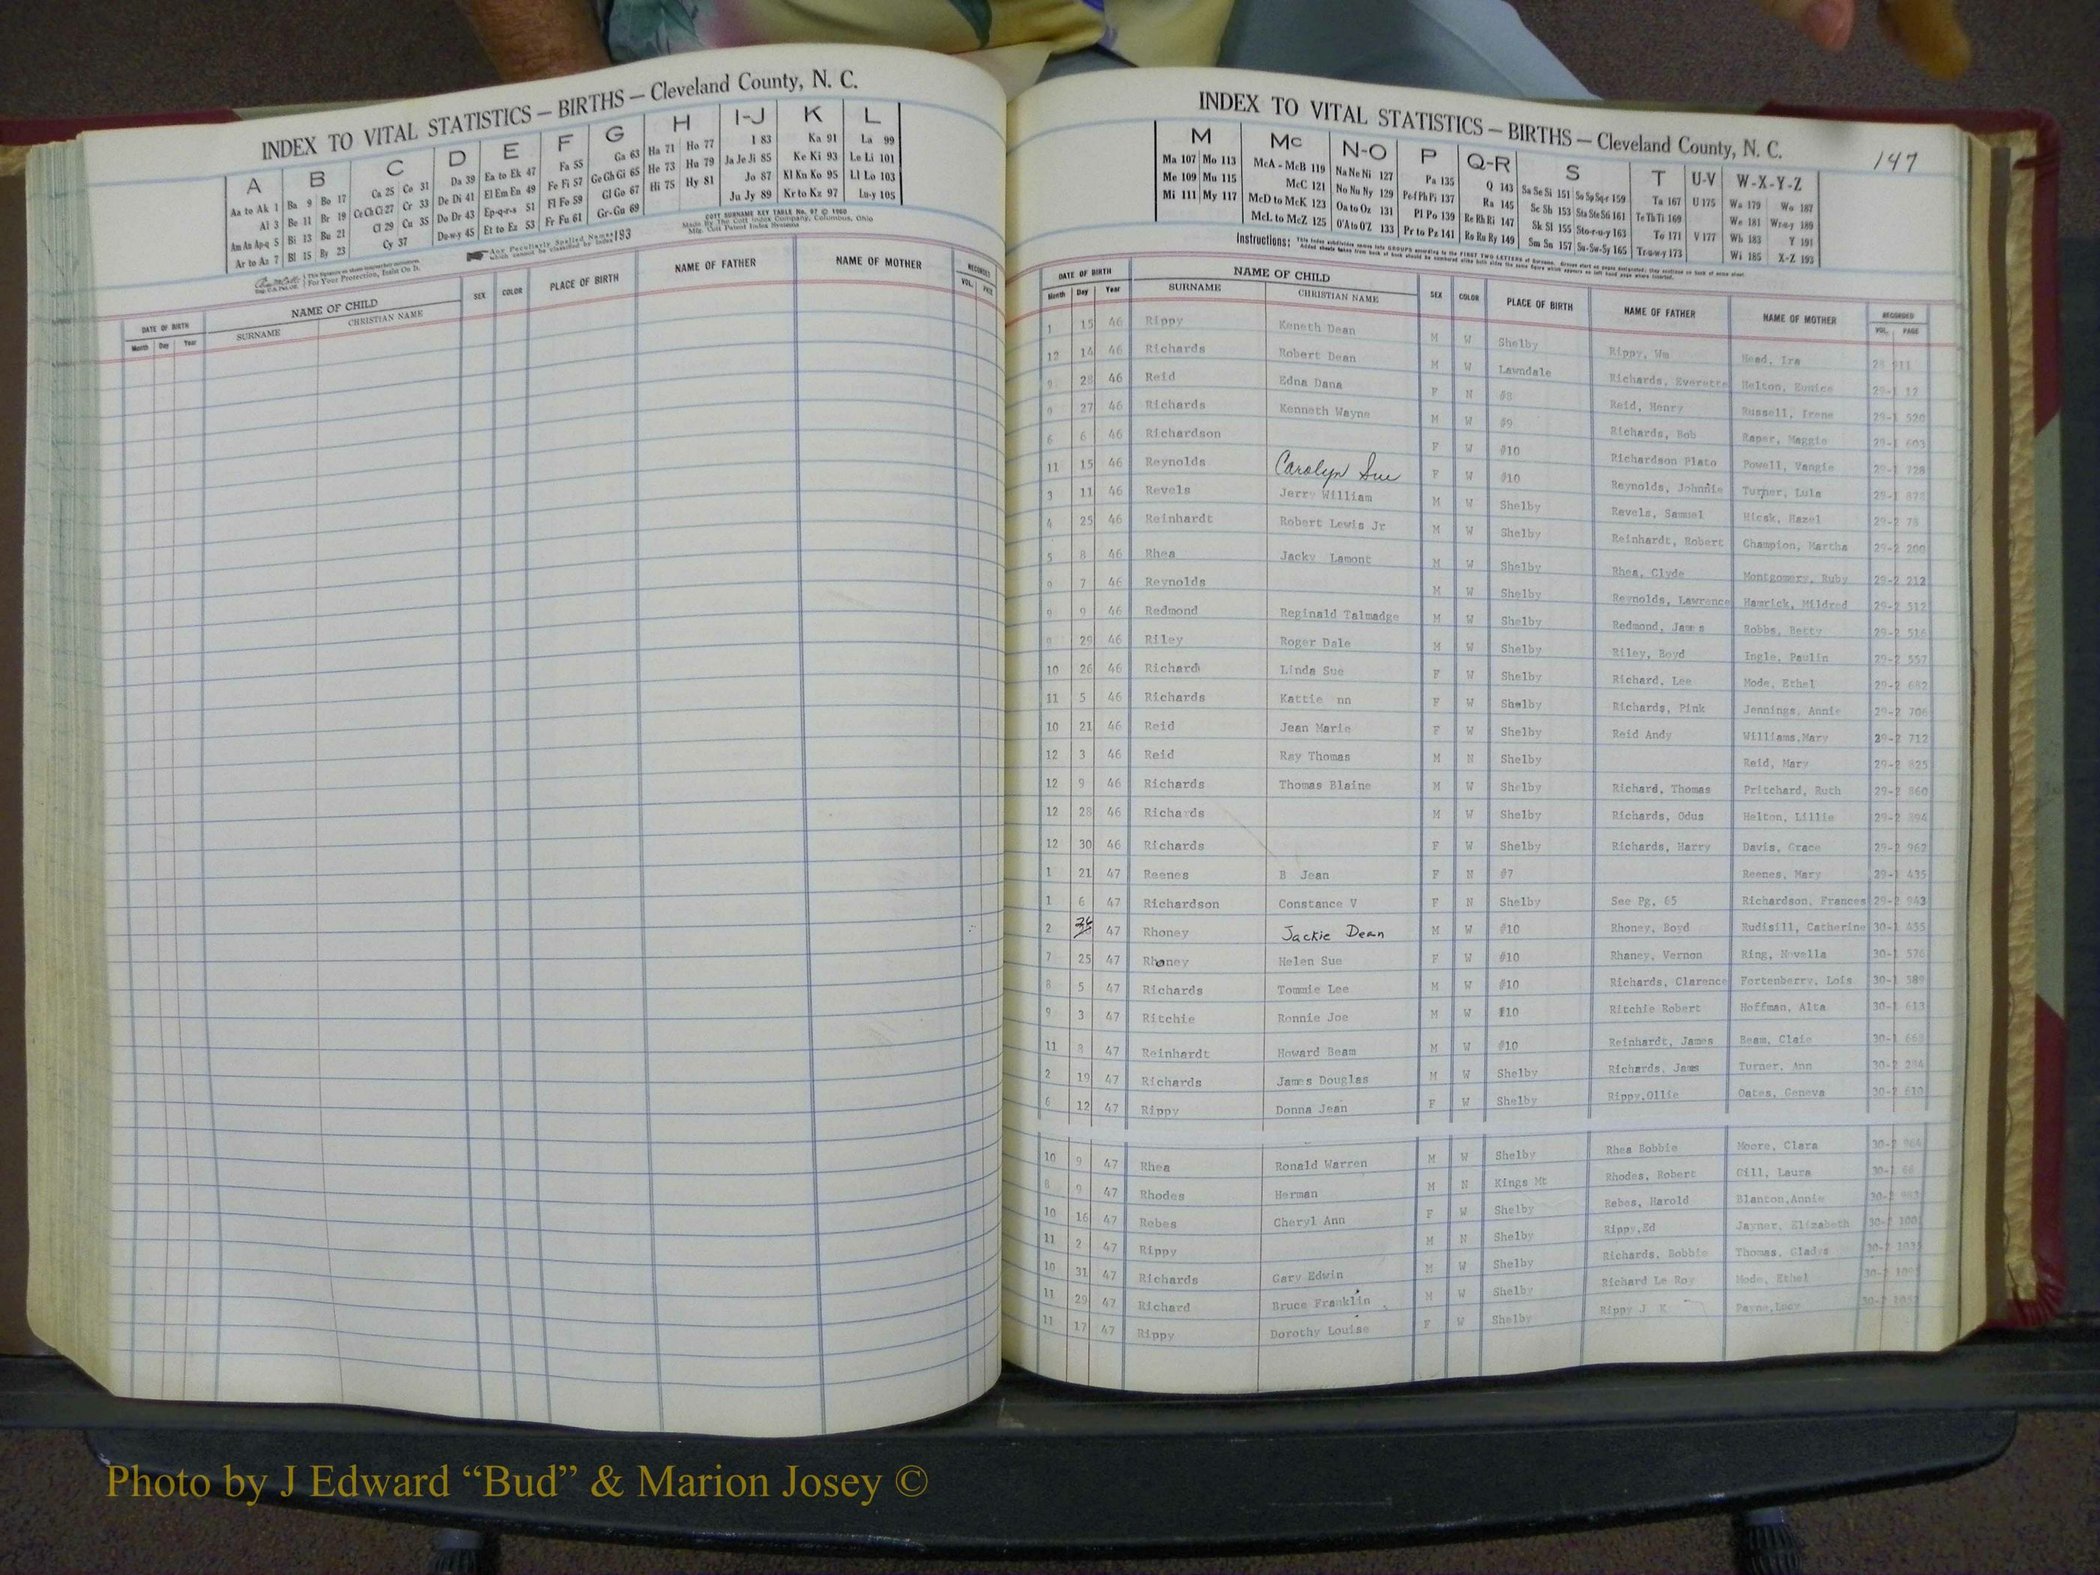 INDEX TO VITAL STATISTICS — BIRTHS — Cleveland County, N. C.
A B C D E F G H I-J K L
Aa to Ak 1 Ba 9 Bo 17 Ca 25 Co 31 Da 39 Ea to Ek 47 Fa 55 Ga 63 Ha 71 Ho 77 I 83 Ka 91 La 99
Al 3 Be 11 Br 19 Ce Ch Ci 27 Cr 33 De Di 41 El Em En 49 Fe Fi 57 Ge Gh Gi 65 He 73 Hu 79 Ja Je Ji 85 Ke Ki 93 Le Li 101
Am An Ap-q 5 Bi 13 Bu 21 Cl 29 Cu 35 Do Dr 43 Ep-q-r-s 51 Fl Fo 59 Gl Go 67 Hi 75 Hy 81 Jo 87 Kl Kn Ko 95 Ll Lo 103
Ar to Az 7 Bl 15 By 23 Cy 37 Du-w-y 45 Et to Ez 53 Fr Fu 61 Gr-Gu 69 Ju Jy 89 Kr to Kz 97 Lu-y 105
COTT SURNAME KEY TABLE No. 97 © 1960
Made by The Cott Index Company, Columbus, Ohio
Mfg. Cott Patent Index Systems
Any Peculiarly Spelled Names which cannot be classified by Index 193
For Your Protection, Insist On It.
DATE OF BIRTH NAME OF CHILD SEX COLOR PLACE OF BIRTH NAME OF FATHER NAME OF MOTHER RECORDED
Month Day Year SURNAME CHRISTIAN NAME VOL. PAGE
INDEX TO VITAL STATISTICS — BIRTHS — Cleveland County, N. C.
147
M Mc N-O P Q-R S T U-V W-X-Y-Z
Ma 107 Mo 113 McA - McB 119 Na Ne Ni 127 Pa 135 Q 143 Sa Se Si 151 So Sp Sq-r 159 Ta 167 U 175 Wa 179 Wo 187
Me 109 Mu 115 McC 121 No Nu Ny 129 Pe f Ph Pi 137 Ra 145 Sc Sh 153 Sta Ste Sti 161 Te Th Ti 169 We 181 Wr-u-y 189
Mi 111 My 117 McD to McK 123 Oa to Oz 131 Pl Po 139 Re Rh Ri 147 Sk Sl 155 Sto-r-u-y 163 To 171 V 177 Wh 183 Y 191
McL to McZ 125 O'A to O'Z 133 Pr to Pz 141 Ro Ru Ry 149 Sm Sn 157 Su-Sw-Sy 165 Tr-u-w-y 173 Wi 185 X-Z 193
Instructions:
DATE OF BIRTH NAME OF CHILD SEX COLOR PLACE OF BIRTH NAME OF FATHER NAME OF MOTHER RECORDED
Month Day Year SURNAME CHRISTIAN NAME VOL. PAGE
1 15 46 Rippy Keneth Dean M W Shelby Rippy, Wm Head, Ira
12 14 46 Richards Robert Dean M W Lawndale Richards, Everette Helton, Eunice 29-1 12
9 28 46 Reid Edna Dana F N #8 Reid, Henry Russell, Irene 29-1 520
9 27 46 Richards Kenneth Wayne M W #9 Richards, Bob Raper, Maggie 29-1 603
6 6 46 Richardson F W #10 Richardson Plato Powell, Vangie 29-1 728
11 15 46 Reynolds Carolyn Sue F W #10 Reynolds, Johnnie Turner, Lula 29-1 878
3 11 46 Revels Jerry William M W Shelby Revels, Samuel Hicsk, Hazel 29-2 78
4 25 46 Reinhardt Robert Lewis Jr M W Shelby Reinhardt, Robert Champion, Martha 29-2 200
5 8 46 Rhea Jacky Lamont M W Shelby Rhea, Clyde Montgomery, Ruby 29-2 212
9 7 46 Reynolds M W Shelby Reynolds, Lawrence Hamrick, Mildred 29-2 512
9 9 46 Redmond Reginald Talmadge M W Shelby Redmond, James Robbs, Betty 29-2 516
9 29 46 Riley Roger Dale M W Shelby Riley, Boyd Ingle, Paulin 29-2 557
10 26 46 Richard Linda Sue F W Shelby Richard, Lee Mode, Ethel 29-2 682
11 5 46 Richards Kattie nn F W Shelby Richards, Pink Jennings, Annie 29-2 706
10 21 46 Reid Jean Marie F W Shelby Reid Andy Williams,Mary 29-2 712
12 3 46 Reid Ray Thomas M N Shelby Reid, Mary 29-2 825
12 9 46 Richards Thomas Blaine M W Shelby Richard, Thomas Pritchard, Ruth 29-2 860
12 28 46 Richards M W Shelby Richards, Odus Helton, Lillie 29-2 894
12 30 46 Richards F W Shelby Richards, Harry Davis, Grace 29-2 962
1 21 47 Reenes B Jean F N #7 Reenes, Mary 29-1 435
1 6 47 Richardson Constance V F N Shelby See Pg. 65 Richardson, Frances 29-2 943
2 47 Rhoney Jackie Dean M W #10 Rhoney, Boyd Rudisill, Catherine 30-1 455
7 25 47 Rhoney Helen Sue F W #10 Rhaney, Vernon Ring, Novella 30-1 576
8 5 47 Richards Tommie Lee M W #10 Richards, Clarence Fortenberry, Lois 30-1 589
9 3 47 Ritchie Ronnie Joe M W #10 Ritchie Robert Hoffman, Alta 30-1 613
11 8 47 Reinhardt Howard Beam M W #10 Reinhardt, James Beam, Claie 30-1
2 19 47 Richards James Douglas M W Shelby Richards, Jams Turner, Ann 30-2
6 12 47 Rippy Donna Jean F W Shelby Rippy,Ollie Oates, Geneva 30-2 610
10 9 47 Rhea Ronald Warren M W Shelby Rhea Bobbie Moore, Clara 30-2
8 9 47 Rhodes Herman M N Kings Mt Rhodes, Robert Gill, Laura 30-1 66
10 16 47 Rebes Cheryl Ann F W Shelby Rebes, Harold Blanton,Annie 30-2
11 2 47 Rippy M N Shelby Rippy,Ed Jayner, Elizabeth 30-2
10 31 47 Richards Gary Edwin M W Shelby Richards, Bobbie Thomas, Gladys 30-2
11 29 47 Richard Bruce Franklin M W Shelby Richard Le Roy Mode, Ethel 30-2
11 17 47 Rippy Dorothy Louise F W Shelby Rippy J K Payne,Lucy 30-2
Photo by J Edward “Bud” & Marion Josey ©